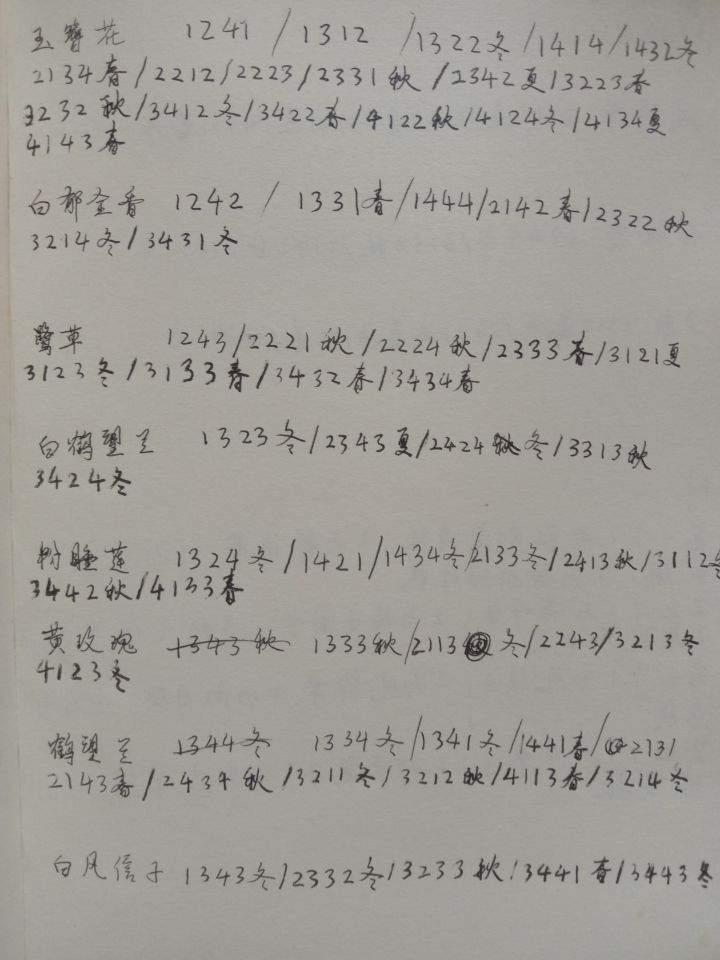 玉簪花 1241 / 1312 / 1322冬 / 1414 / 1432冬
2134春 / 2212 / 2223 / 2331秋 / 2342夏 / 3223春
3232秋 / 3412冬 / 3422春 / 4122秋 / 4124冬 / 4134夏
4143春
白郁金香 1242 / 1331春 / 1444 / 2142春 / 2322秋
3214冬 / 3431冬
鹭草 1243 / 2221秋 / 2224秋 / 2333春 / 3121夏
3123冬 / 3133春 / 3432春 / 3434春
白鹤望兰 1323冬 / 2343夏 / 2424秋冬 / 3313秋
3424冬
粉睡莲 1324冬 / 1421 / 1434冬 / 2133冬 / 2413秋 / 3112冬
3442秋 / 4133春
黄玫瑰 1343秋 1333秋 / 2113 冬 / 2243 / 3213冬
4123冬
鹤望兰 1344冬 1334冬 / 1341冬 / 1441春 / 2131
2143春 / 2434秋 / 3211冬 / 3212秋 / 4113春 / 3214冬
白风信子 1343冬 / 2332冬 / 3233秋 / 3441春 / 3443冬